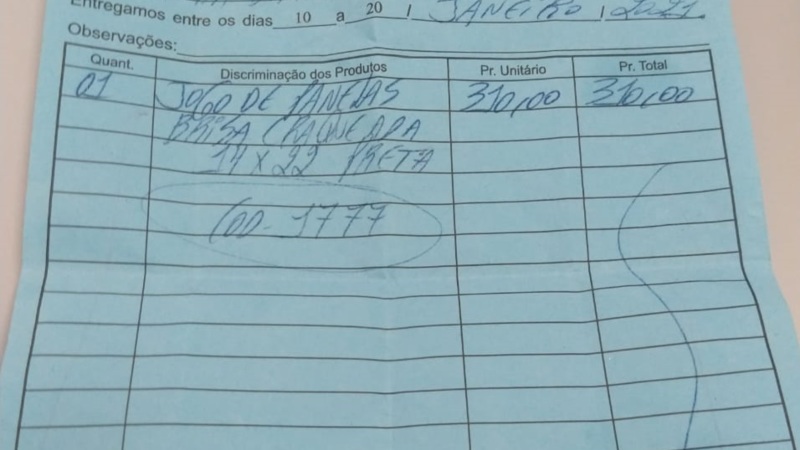 Entregamos entre os dias 10 a 20 / JANEIRO / 2021.
Observações:
Quant. Discriminação dos Produtos Pr. Unitário Pr. Total
01 JOGO DE PANELAS 310,00 310,00
BRISA CRAQUEADA
14 X 22 PRETA
COD- 1777